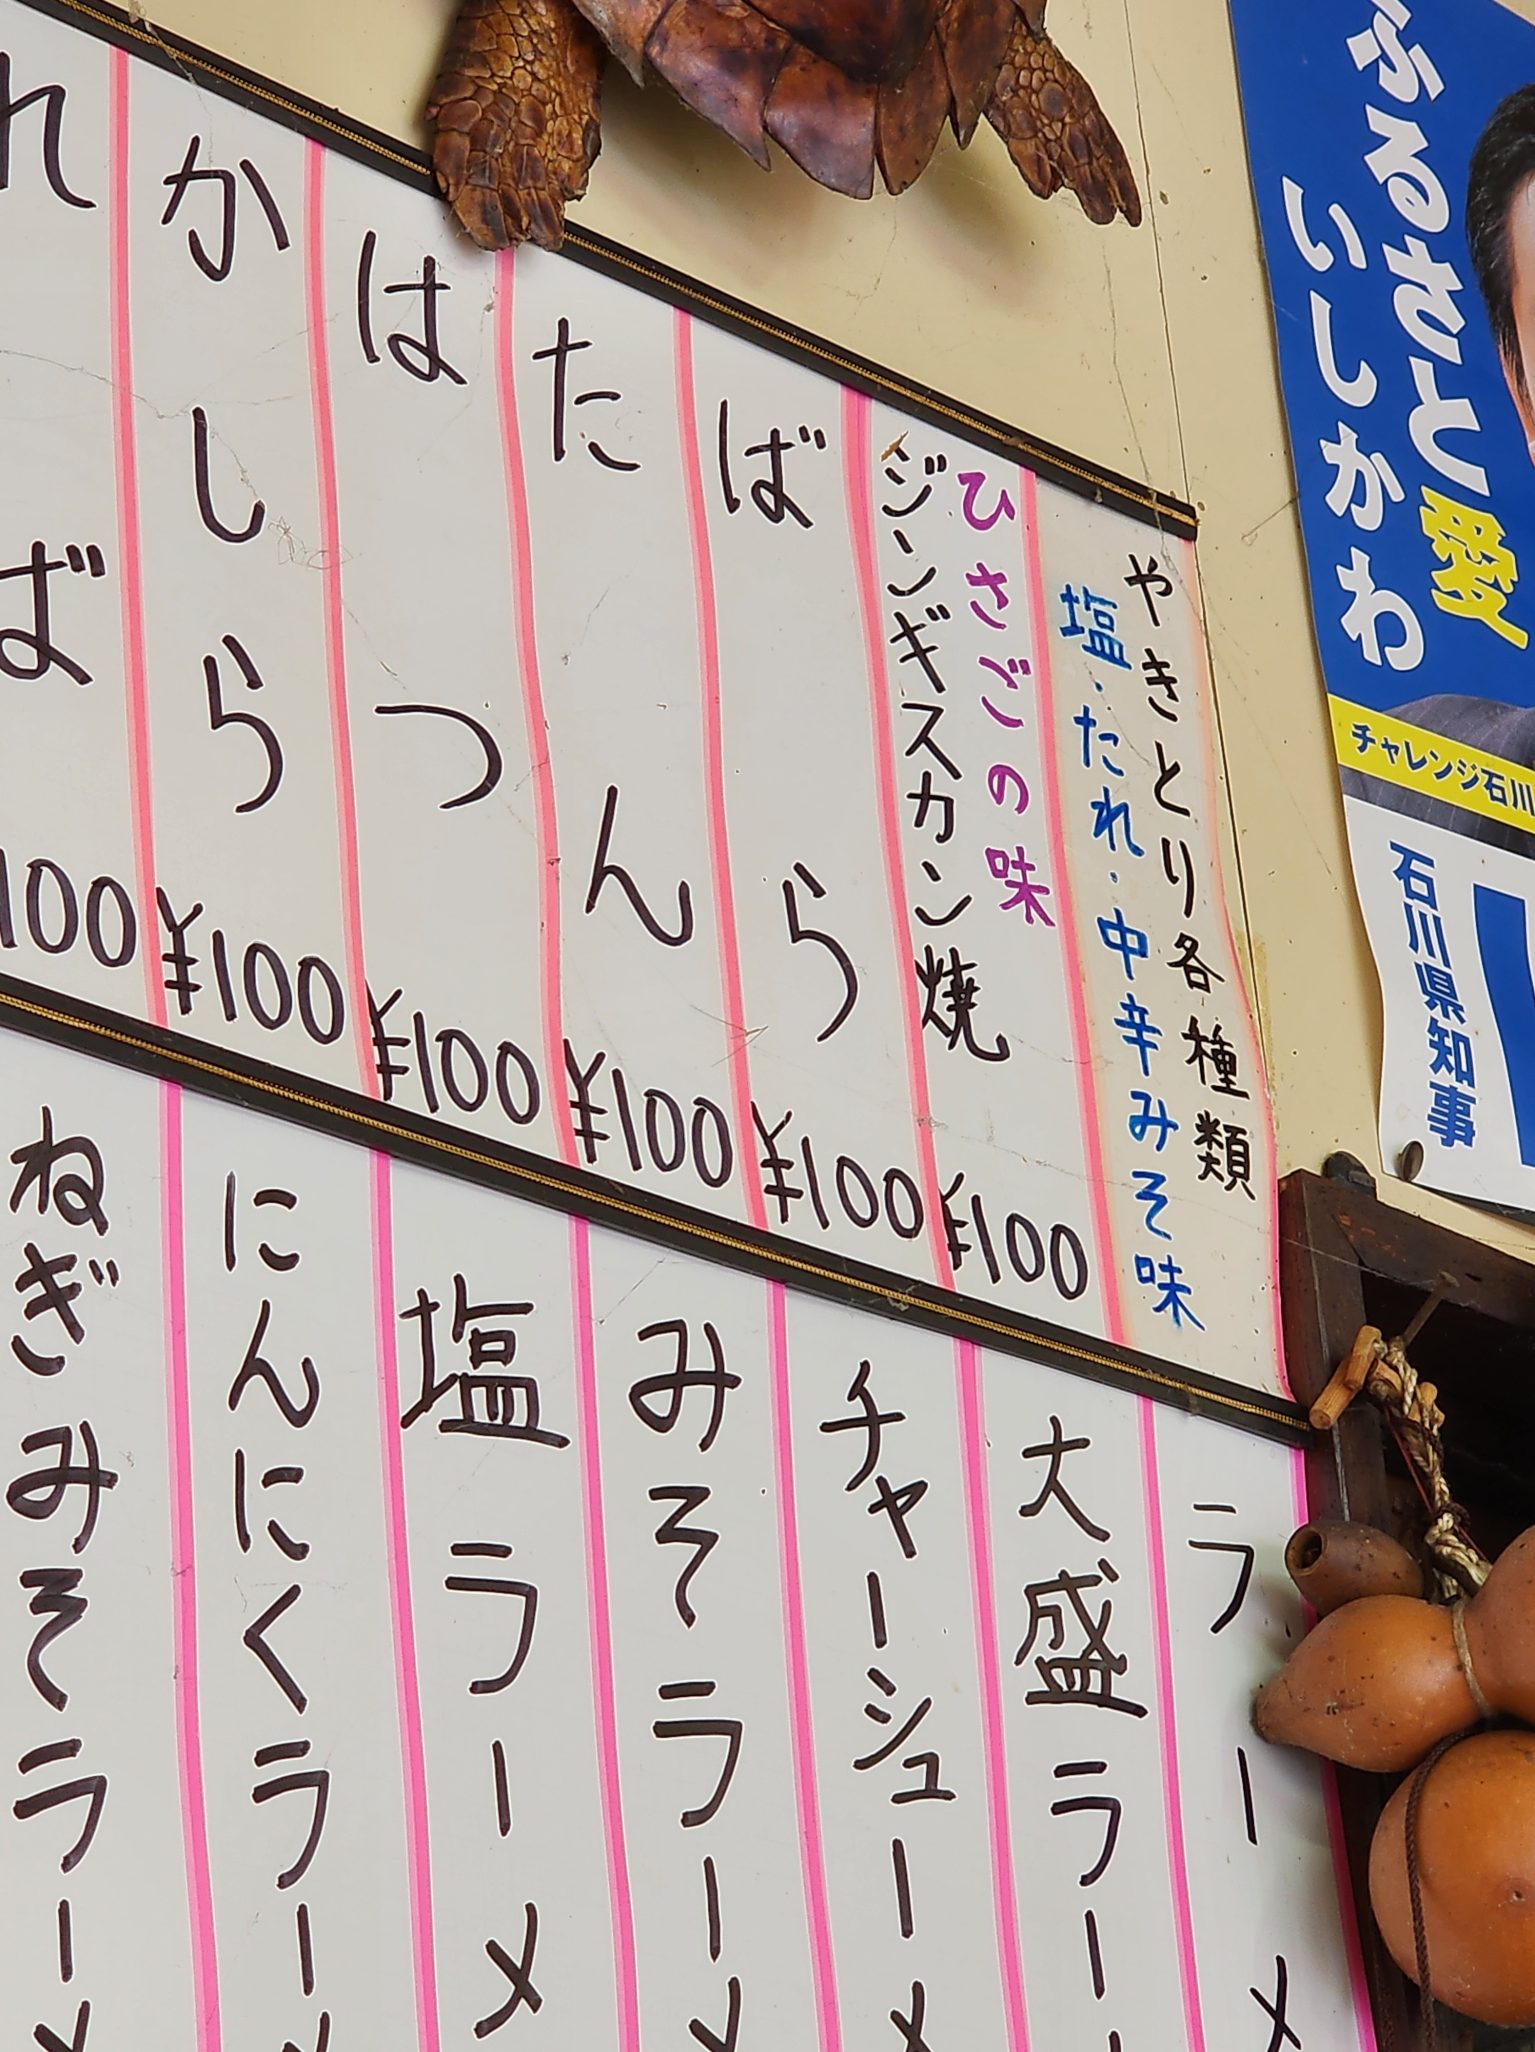 ふるさと愛
いしかわ
チャレンジ石川
石川県知事
やきとり各種類
塩・たれ・中辛みそ味
ひさごの味
ジンギスカン焼 ¥100
ばら ¥100
たん ¥100
はつ ¥100
かしら ¥100
れば 100
ラーメ
大盛ラー
チャーシューメ
みそラーメ
塩ラーメ
にんにくラーメ
ねぎみそラーメ